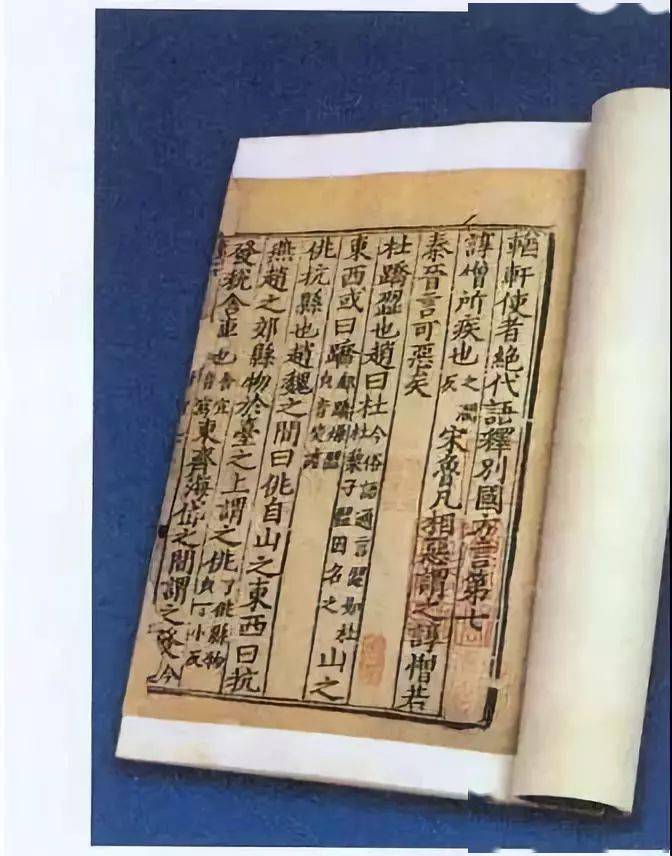 輶軒使者絕代語釋別國方言第七
諄憎所疾也之潤反宋魯凡相惡謂之諄憎若
秦晉言可惡矣
杜蹻歰也趙曰杜今俗語通言歰如杜杜棃子歰因名之山之
東西或曰蹻郄蹻燥歰皃音笑謔
佻抗縣也趙魏之間曰佻自山之東西曰抗
燕趙之郊縣物於臺之上謂之佻了佻縣物皃丁小反
發稅舍車也舍宜音寫東齊海岱之間謂之發今